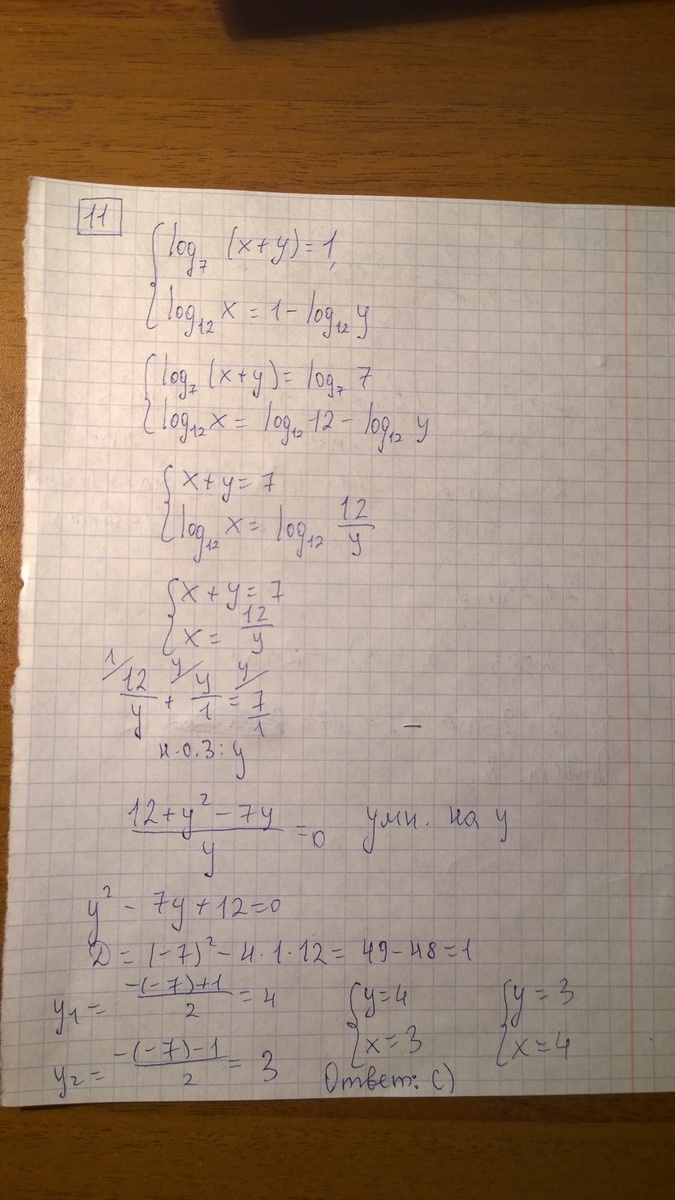 11
log₇ (x+y) = 1,
log₁₂ x = 1 - log₁₂ y
log₇ (x+y) = log₇ 7
log₁₂ x = log₁₂ 12 - log₁₂ y
x+y = 7
log₁₂ x = log₁₂ 12/y
x+y = 7
x = 12/y
1/ 12/y + y/ y/1 = y/ 7/1
н.о.з: y
(12+y²-7y)/y = 0 умн. на y
y² - 7y + 12 = 0
D = (-7)² - 4·1·12 = 49-48 = 1
y₁ = (-(-7)+1)/2 = 4
y₂ = (-(-7)-1)/2 = 3
y=4
x=3
y=3
x=4
Ответ: c)